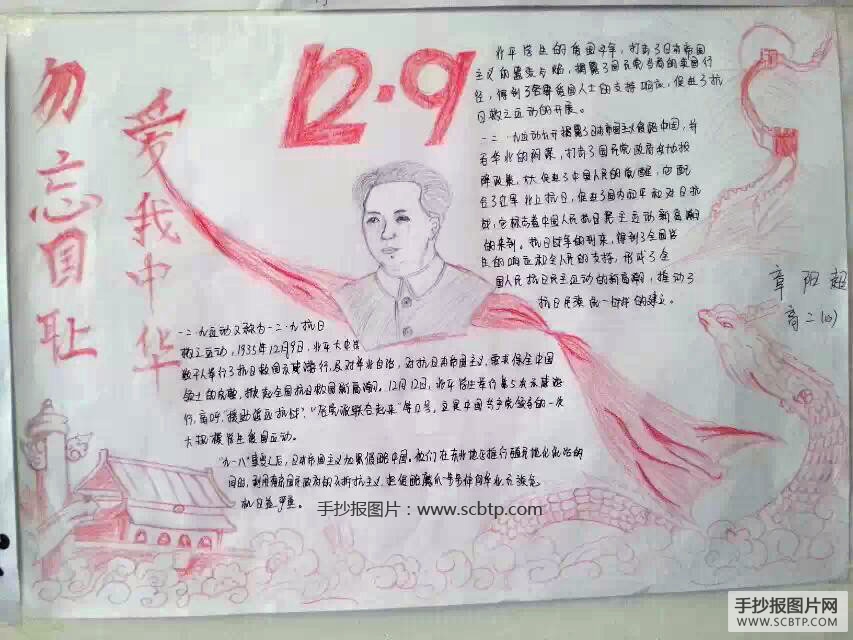 勿忘国耻
爱我中华
12.9
北平学生的爱国斗争,打击了日本帝国
主义的嚣张气焰,揭露了国民党当局的卖国行
径,得到了全国爱国人士的支持响应,促进了抗
日救亡运动的开展。
一二·九运动公开揭露了日本帝国主义侵略中国,并
吞华北的阴谋,打击了国民党政府的妥协投
降政策,大大促进了中国人民的觉醒。它配
合了红军北上抗日,促进了国内和平和对日抗
战,它标志着中国人民抗日民主运动新高潮
的来到。抗日斗争的到来,得到了全国学
生的响应和全国人民的支持,形成了全
国人民抗日民主运动的新高潮,推动了
抗日民族统一战线的建立。
章阳超
高二(4)
一二·九运动又称为一二·九抗日
救亡运动,1935年12月9日,北平大中学生
数千人举行了抗日救国示威游行,反对华北自治,反抗日本帝国主义,要求保全中国
领土的完整,掀起全国抗日救国新高潮。12月12日,北平学生举行第5次示威游
行,高呼"援助绥远抗战","各党派联合起来"等口号,这是中国共产党领导的一次
大规模学生爱国运动。
"九一八"事变之后,日本帝国主义加紧侵略中国。他们在东北地区推行殖民地化统治的
同时,利用南京国民政府的不抵抗主义,把侵略魔爪一步步伸向华北,民族危
机日益严重。
手抄报图片:www.scbtp.com
手抄报图片网
WWW.SCBTP.COM